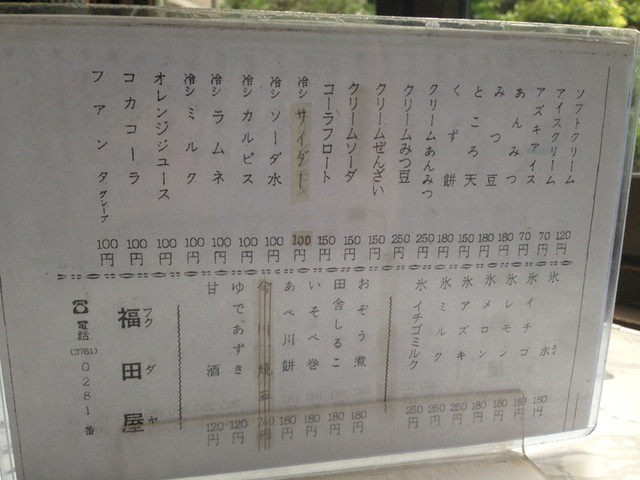 ソフトクリーム 120円
アイスクリーム 70円
アズキアイス 70円
あんみつ 180円
みつ豆 180円
ところ天 150円
くず餅 180円
クリームあんみつ 250円
クリームみつ豆 250円
クリームぜんざい 150円
クリームソーダ 150円
コーラフロート 150円
冷シサイダー 100円
冷シソーダ水 100円
冷シカルピス 100円
冷シラムネ 100円
冷シミルク 100円
オレンジジュース 100円
コカコーラ 100円
ファンタグレープ 100円
氷水 180円
氷イチゴ 180円
氷レモン 180円
氷メロン 180円
氷アズキ 250円
氷ミルク 250円
氷イチゴミルク 250円
おぞう煮 180円
田舎しるこ 180円
いそべ巻 180円
あべ川餅 180円
今川焼
ゆであずき 120円
甘酒 120円
フクダヤ
福田屋
☎電話(3761)0281番